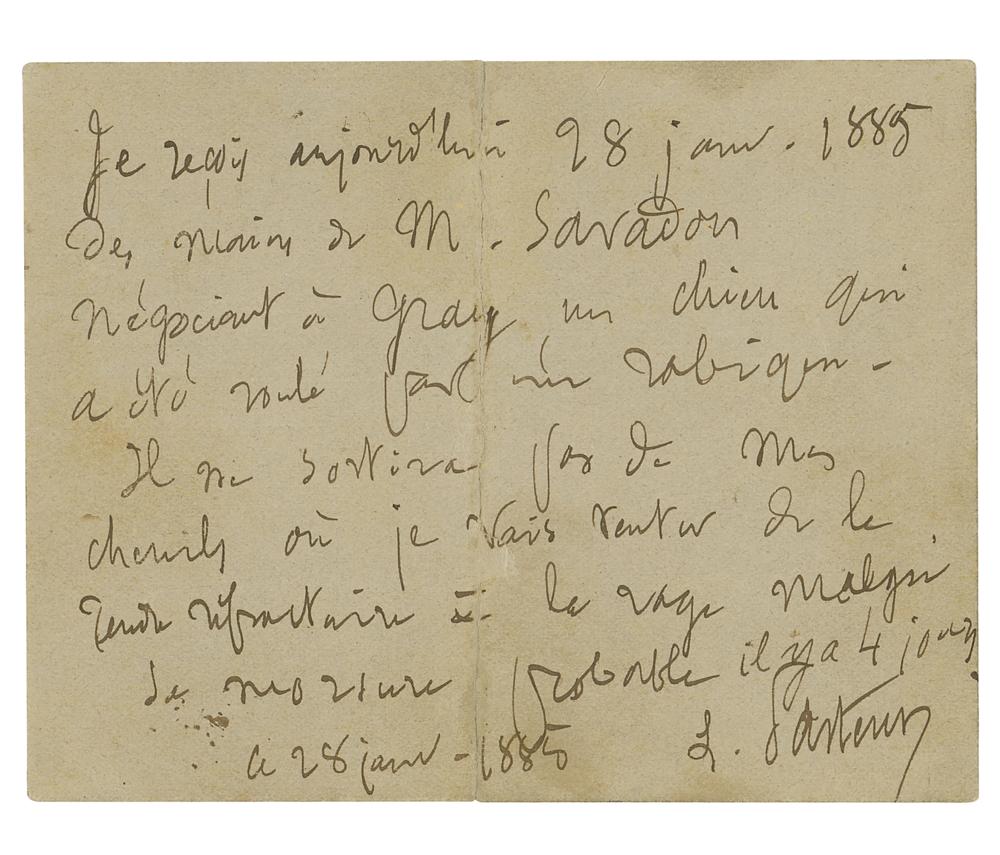 Je reçois aujourd'hui 28 janv. 1885
des mains de M. Savadon
négociant à Gray un chien qui
a été roulé par un rabique -
Il ne sortira pas de mes
chenils où je vais tenter de le
rendre réfractaire à la rage malgré
sa morsure probable il y a 4 jours
ce 28 janv - 1885 L. Pasteur